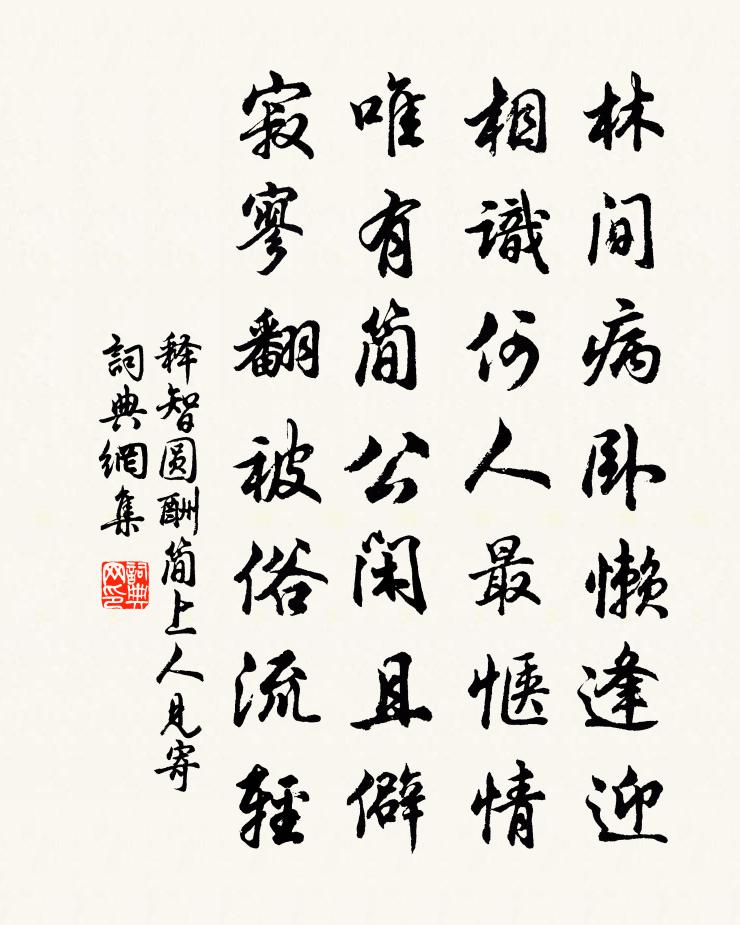 林间病卧懒逢迎
相識何人最惬情
唯有简公闲且僻
寂寥翻被俗流輕
释智圆酬简上人見寄
詞典網集
詞典网印